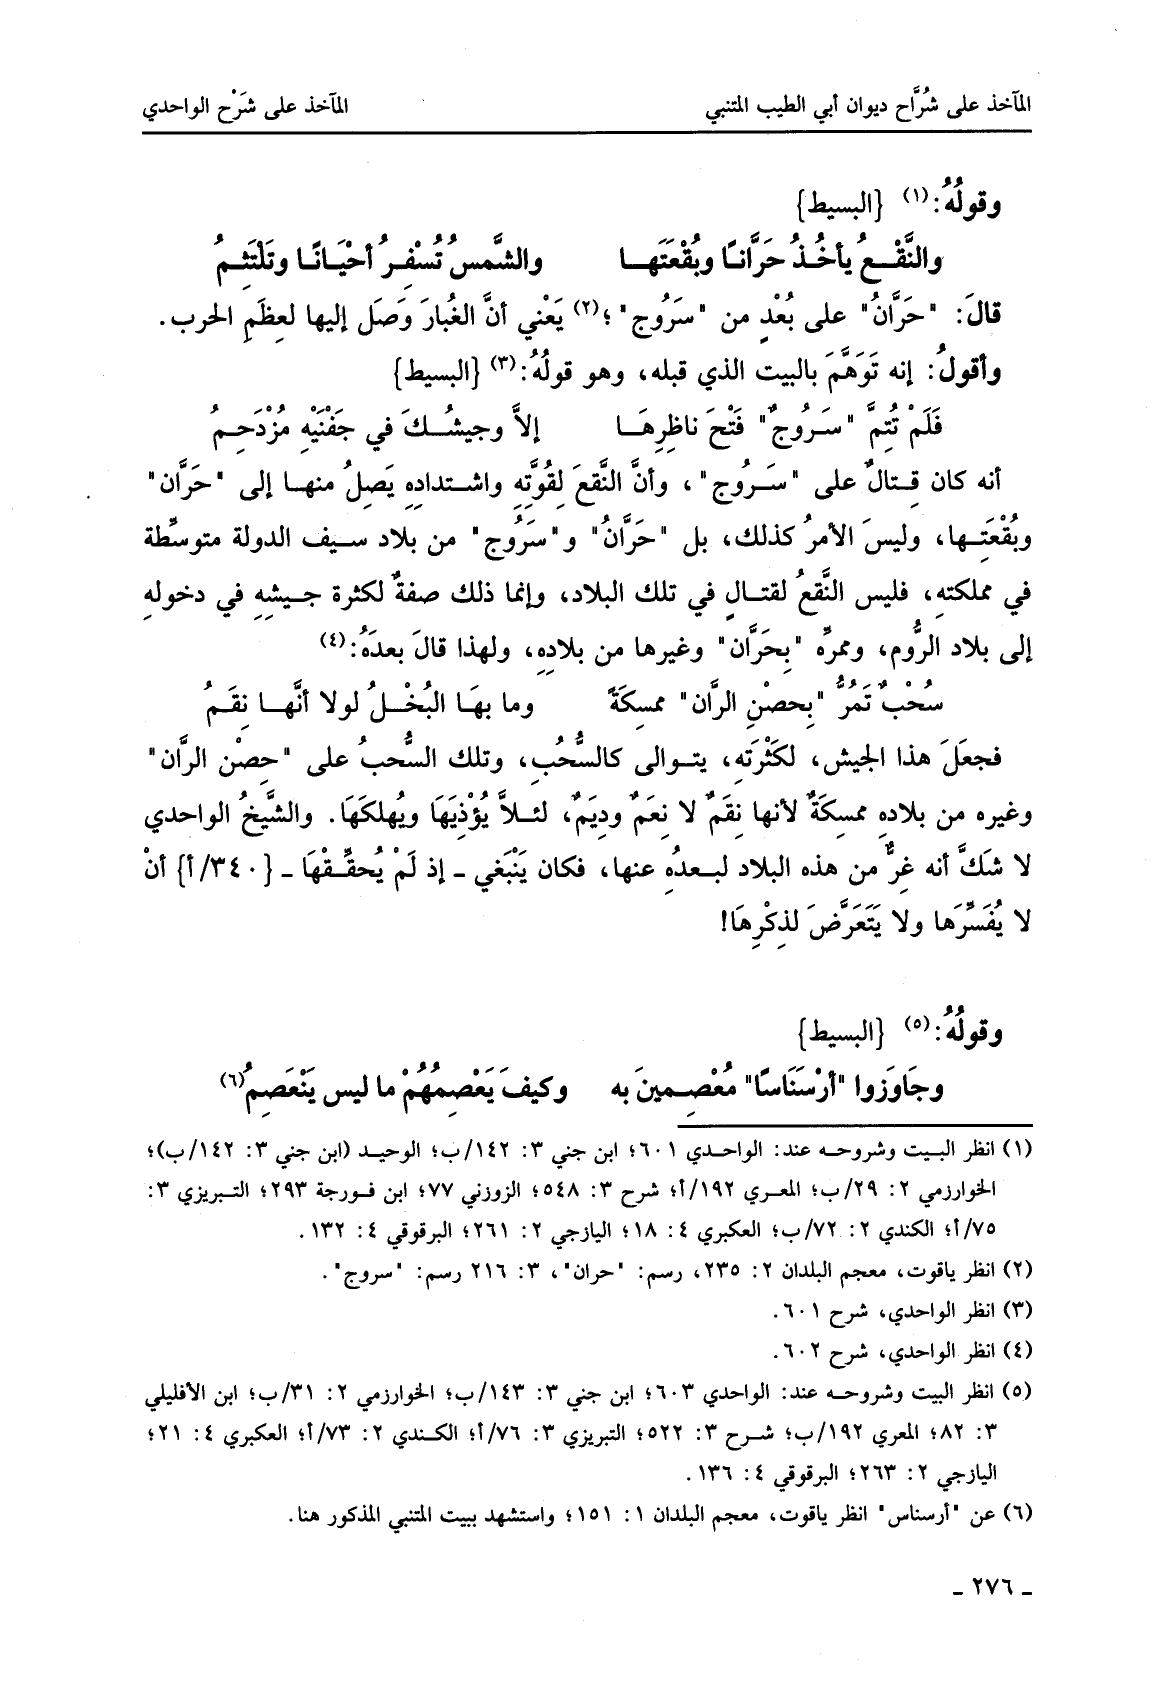 المآخذ على شُرَّاح ديوان أبي الطيب المتنبي
المآخذ على شَرْح الواحدي
وقولُهُ:(١) {البسيط}
والنَّقْعُ يأخُذُ حَرَّانًا وبُقْعَتَهَا والشَّمسُ تُسْفِرُ أحْيَانًا وتَلْتَثِمُ
قالَ: "حَرَّانُ" على بُعْدٍ من "سَرُوج"؛(٢) يَعْني أنَّ الغُبارَ وَصَل إليها لعِظَمِ الحرب.
وأقولُ: إنه تَوَهَّمَ بالبيت الذي قبله، وهو قولُهُ:(٣) {البسيط}
فَلَمْ تُتِمَّ "سَرُوجٌ" فَتْحَ ناظِرِهَا إلاَّ وجيشُكَ في جَفْنَيْهِ مُزْدَحِمُ
أنه كان قِتالٌ على "سَرُوج"، وأنَّ النَّقعَ لِقُوَّتِهِ واشتدادِهِ يَصِلُ منها إلى "حَرَّان"
وبُقْعَتِها، وليسَ الأمرُ كذلك، بل "حَرَّانُ" و"سَرُوج" من بلاد سيف الدولة متوسِّطة
في مملكتِهِ، فليس النَّقعُ لقتالٍ في تلك البلاد، وإنما ذلك صفةٌ لكثرة جيشِهِ في دخولِهِ
إلى بلاد الرُّوم، وممرِّه "بِحَرَّان" وغيرها من بلادِهِ، ولهذا قالَ بعدَهُ:(٤)
سُحْبٌ تَمُرُّ "بِحصْنِ الرَّان" ممسِكَةً وما بهَا البُخْلُ لولا أنَّها نِقَمُ
فجعَلَ هذا الجيش، لكَثْرَتِه، يتوالى كالسُّحُبِ، وتلك السُّحبُ على "حِصْن الرَّان"
وغيره من بلادِهِ ممسِكَةٌ لأنها نِقَمٌ لا نِعَمٌ ودِيَمٌ، لئلاَّ يُؤْذِيَهَا ويُهلكَهَا. والشَّيخُ الواحدي
لا شكَّ أنه غِرٌّ من هذه البلاد لبعدُهِ عنها، فكان يَنْبَغي - إذ لَمْ يُحقِّقْهَا - {٣٤٠/أ} أنْ
لا يُفَسِّرَها ولا يَتَعَرَّضَ لذِكْرِهَا!
وقولُهُ:(٥) {البسيط}
وجَاوَزوا "أرْسَنَاسًا" مُعْصِمينَ به وكيفَ يَعْصِمُهُمْ ما ليس يَنْعَصِمُ(٦)
(١) انظر البيت وشروحه عند: الواحدي ٦٠١؛ ابن جني ٣: ١٤٢/ب؛ الوحيد (ابن جني ٣: ١٤٢/ب)؛
الخوارزمي ٢: ٢٩/ب؛ المعري ١٩٢/أ؛ شرح ٣: ٥٤٨؛ الزوزني ٧٧؛ ابن فورجة ٢٩٣؛ التبريزي ٣:
٧٥/أ؛ الكندي ٢: ٧٢/ب؛ العكبري ٤: ١٨؛ اليازجي ٢: ٢٦١؛ البرقوقي ٤: ١٣٢.
(٢) انظر ياقوت، معجم البلدان ٢: ٢٣٥، رسم: "حران"، ٣: ٢١٦ رسم: "سروج".
(٣) انظر الواحدي، شرح ٦٠١.
(٤) انظر الواحدي، شرح ٦٠٢.
(٥) انظر البيت وشروحه عند: الواحدي ٦٠٣؛ ابن جني ٣: ١٤٣/ب؛ الخوارزمي ٢: ٣١/ب؛ ابن الأفليلي
٣: ٨٢؛ المعري ١٩٢/ب؛ شرح ٣: ٥٢٢؛ التبريزي ٣: ٧٦/أ؛ الكندي ٢: ٧٣/أ؛ العكبري ٤: ٢١؛
اليازجي ٢: ٢٦٣؛ البرقوقي ٤: ١٣٦.
(٦) عن "أرسناس" انظر ياقوت، معجم البلدان ١: ١٥١؛ واستشهد ببيت المتنبي المذكور هنا.
- ٢٧٦ -